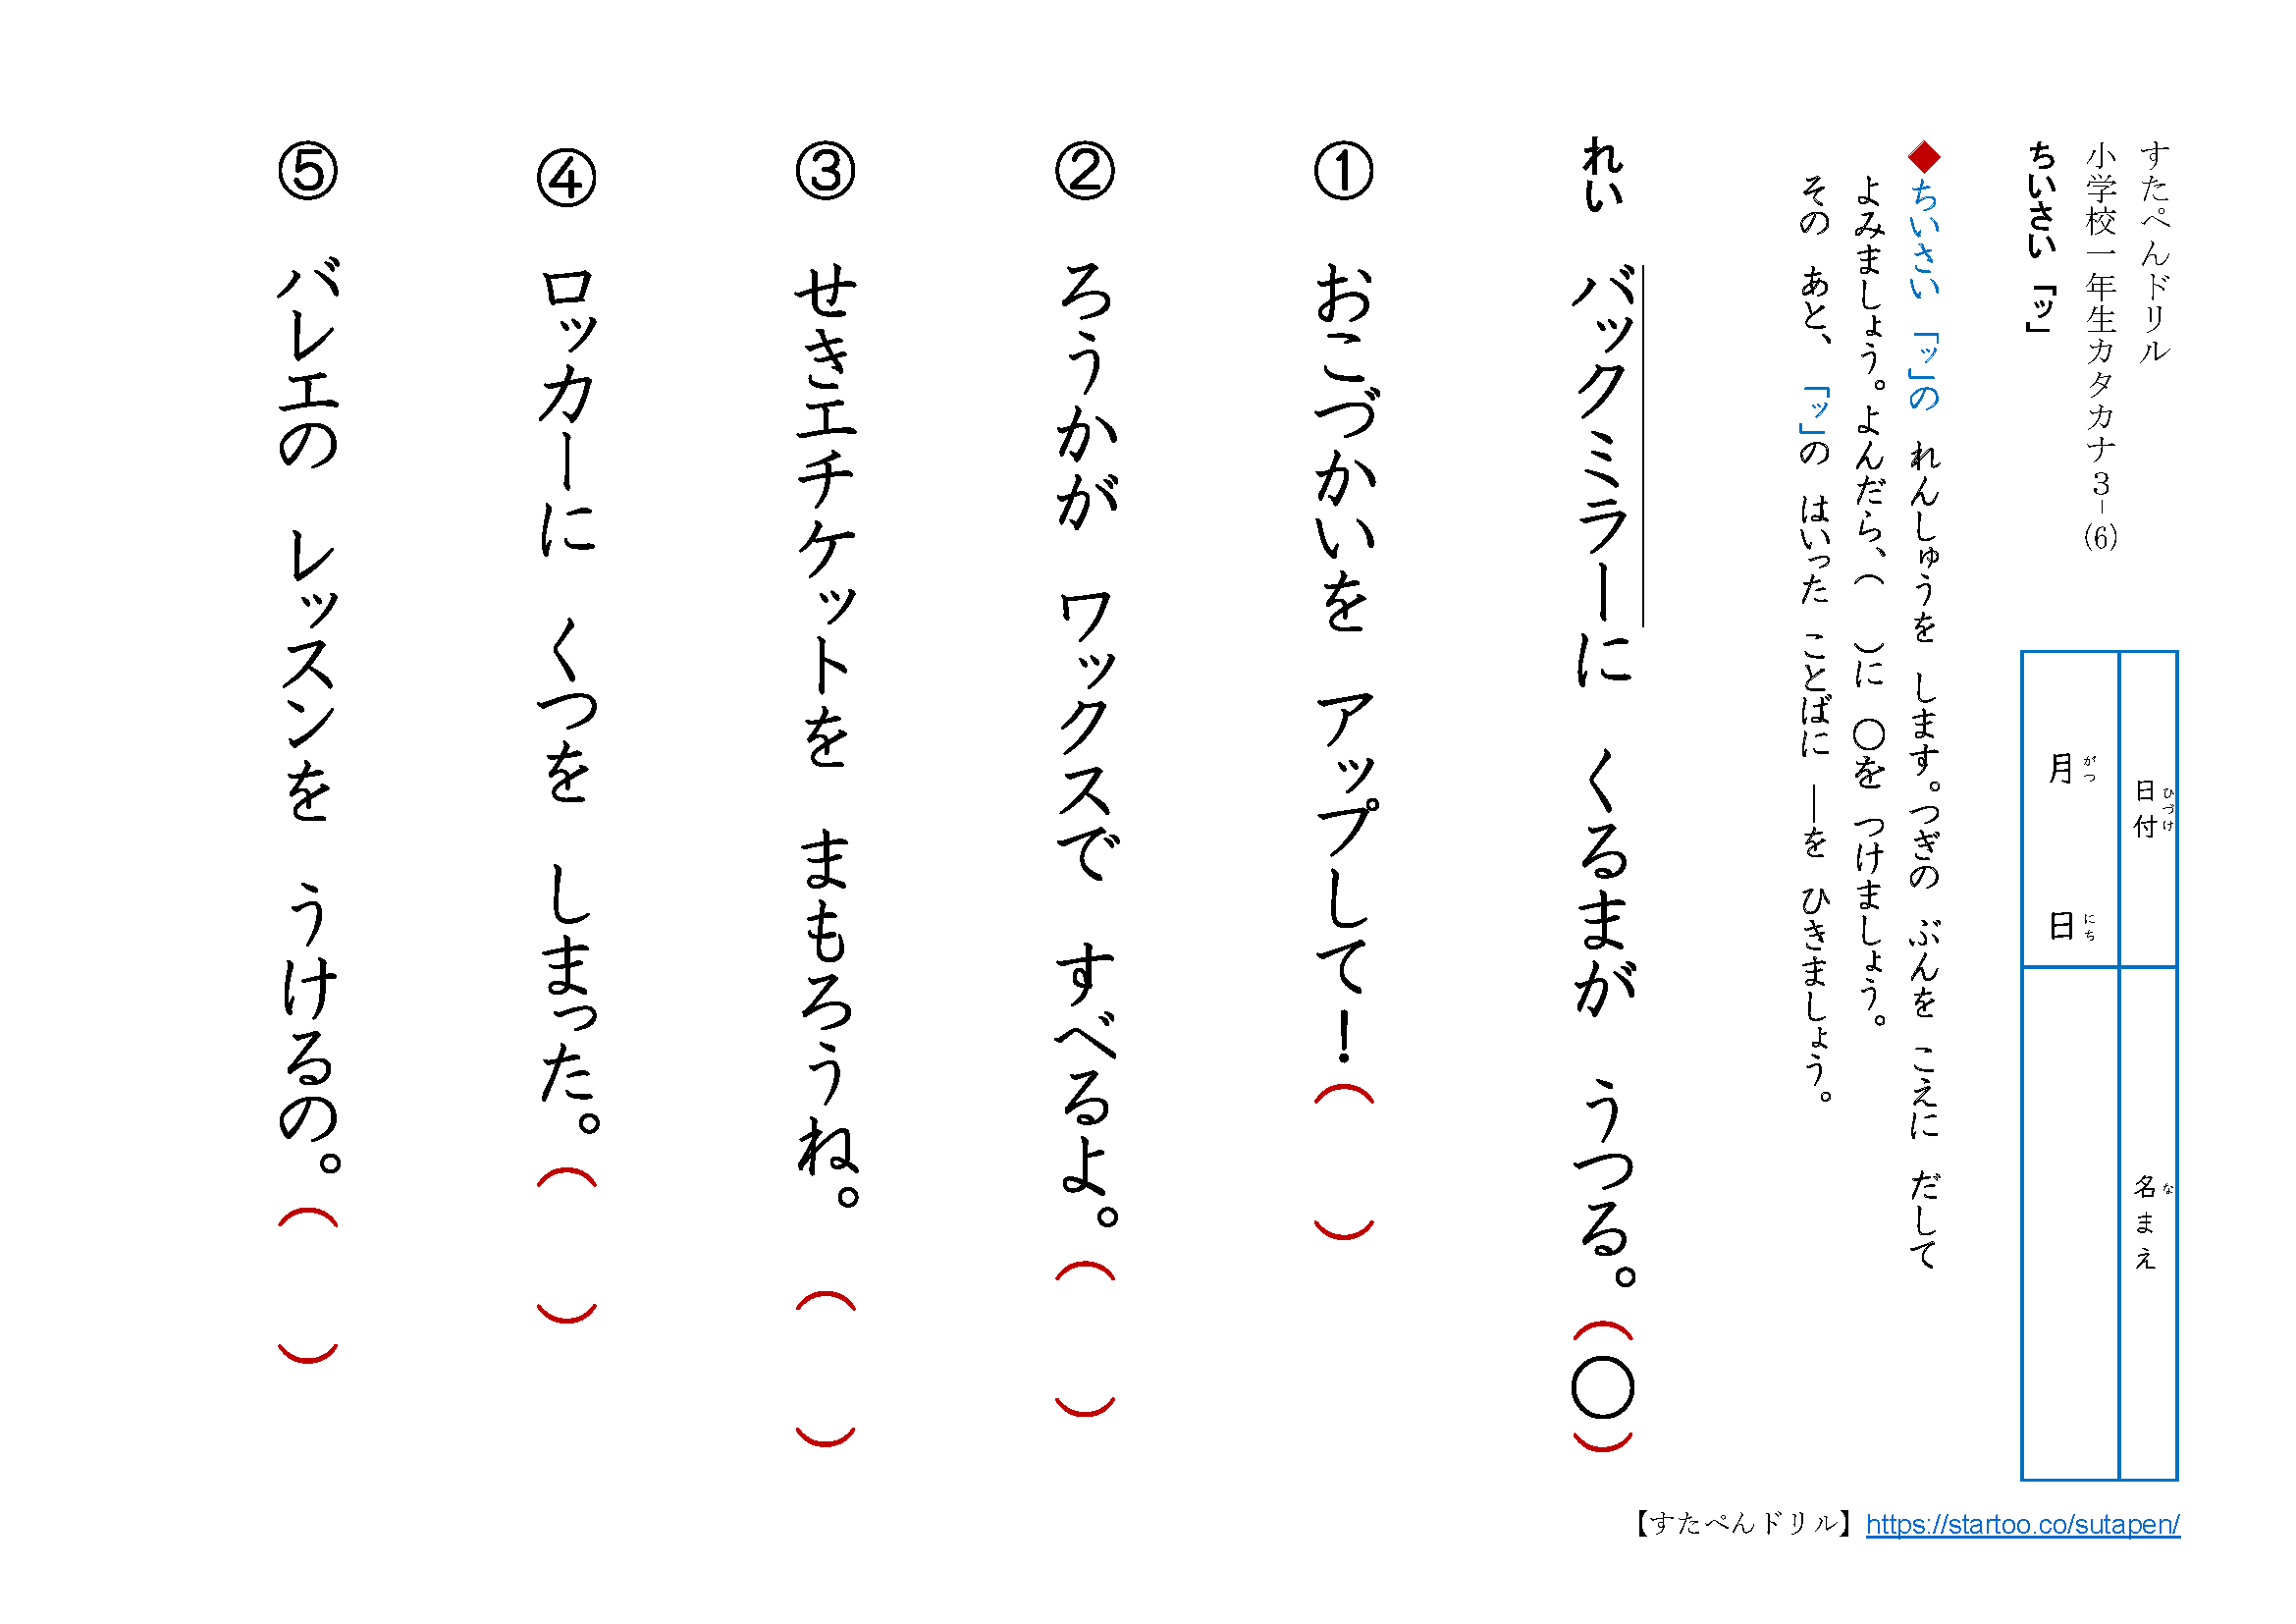 すたぺんドリル
小学校一年生カタカナ3-(6)
ちいさい「ッ」
日付 ひづけ
名まえ な
月 がつ 日 にち
◆ちいさい「ッ」の れんしゅうを します。つぎの ぶんを こえに だして
よみましょう。よんだら、( )に 〇を つけましょう。
その あと、「ッ」の はいった ことばに ―を ひきましょう。
れい バックミラーに くるまが うつる。(〇)
① おこづかいを アップして!( )
② ろうかが ワックスで すべるよ。( )
③ せきエチケットを まもろうね。( )
④ ロッカーに くつを しまった。( )
⑤ バレエの レッスンを うけるの。( )
【すたぺんドリル】https://startoo.co/sutapen/